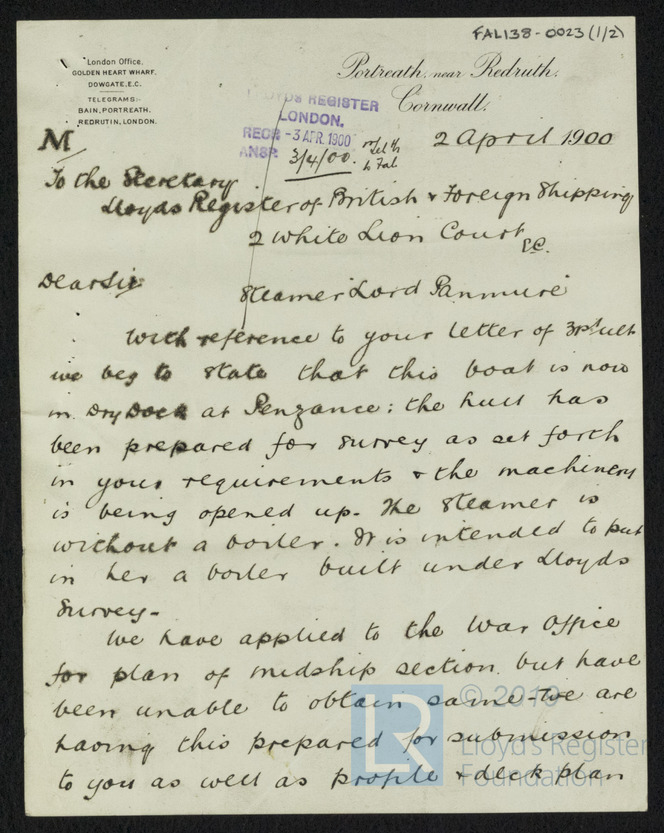 FAL138-0023(1/2)
London Office.
GOLDEN HEART WHARF.
DOWGATE, E.C.
TELEGRAMS:-
BAIN, PORTREATH.
REDRUTIN, LONDON.
Portreath, near Redruth.
Cornwall.
LLOYDS REGISTER
LONDON.
RECD -3 APR. 1900
ANSD. 3/4/00.
to Fal
M
2 April 1900
To the Secretary
Lloyds Register of British & Foreign Shipping
2 White Lion Court
E.C.
Dear Sir
Steamer "Lord Panmure"
With reference to your letter of ult
we beg to state that this boat is now
in Dry Dock at Penzance: the hull has
been prepared for survey as set forth
in your requirements & the machinery
is being opened up. The Steamer is
without a boiler. It is intended to put
in her a boiler built under Lloyds
Survey-
We have applied to the War Office
for plan of midship section but have
been unable to obtain same-We are
having this prepared for submission
to you as well as profile & deck plan
LR
© 2019
Lloyd's Register
Foundation